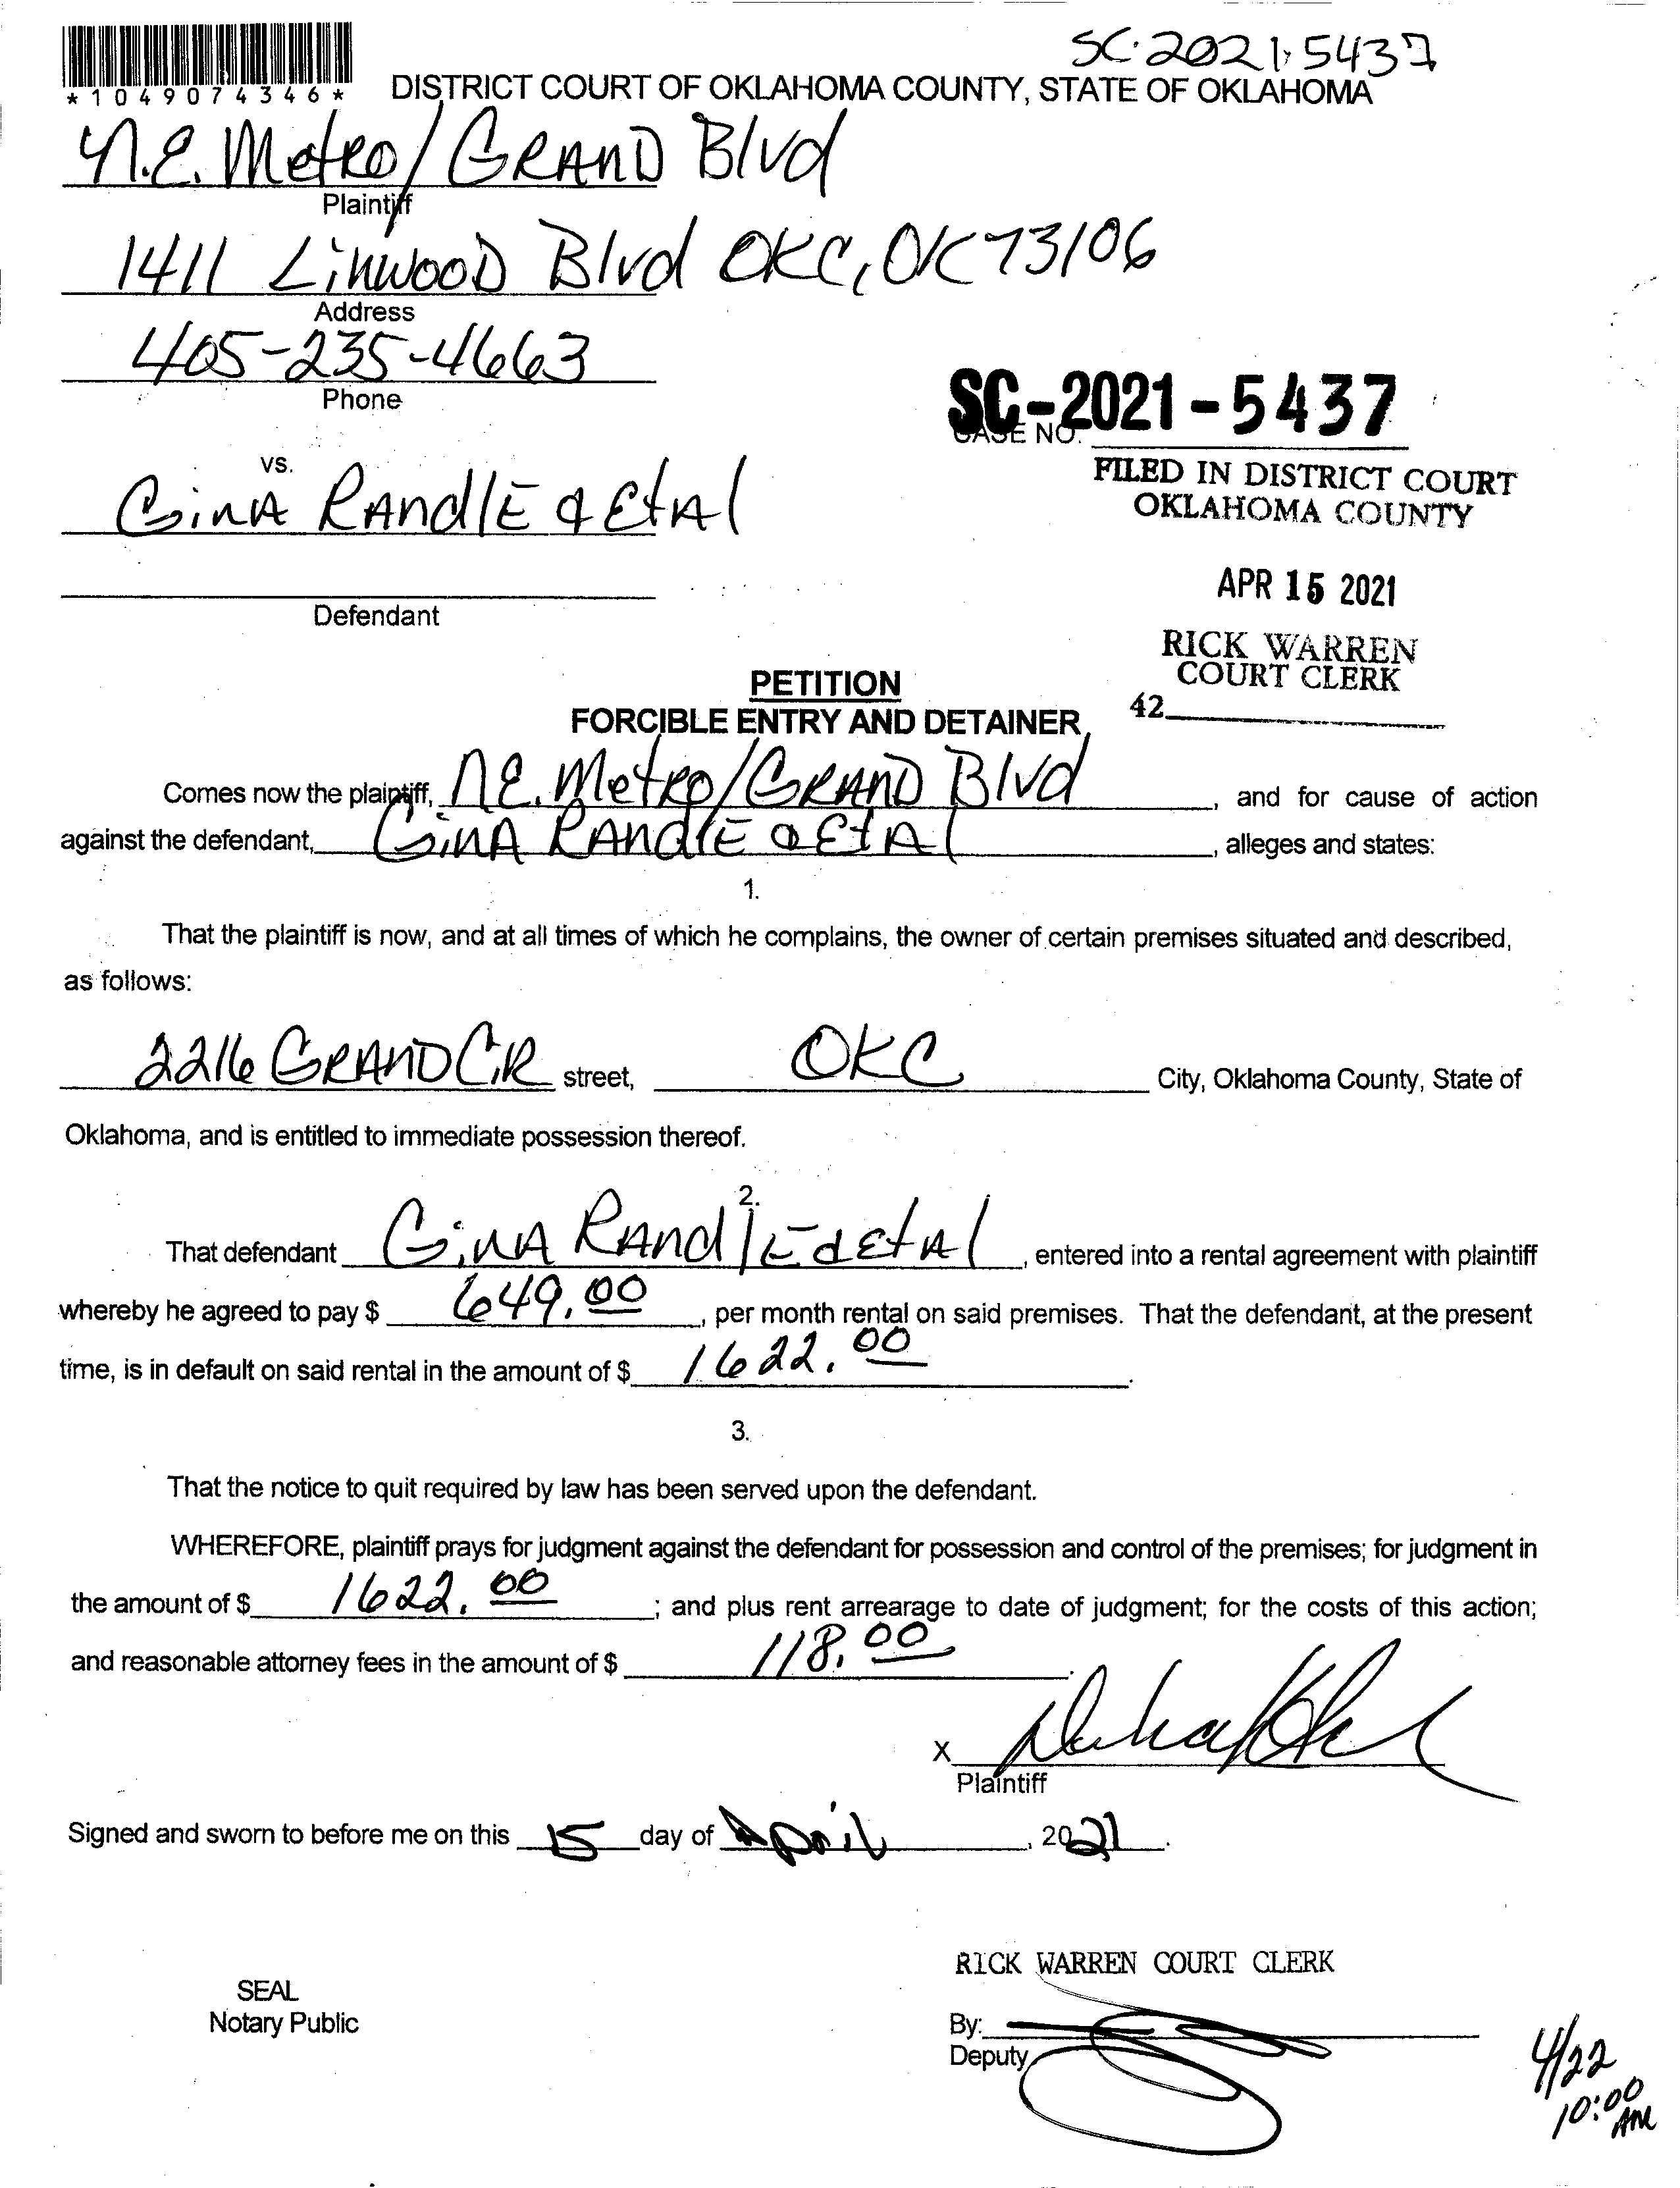 SC-2021-5437
*1049074346*
DISTRICT COURT OF OKLAHOMA COUNTY, STATE OF OKLAHOMA
N.E. Metro/Grand Blvd
Plaintiff
1411 Linwood Blvd OKC, OK 73106
Address
405-235-4663
Phone
SC-2021-5437
CASE NO.
vs.
Gina Randle & Etal
FILED IN DISTRICT COURT
OKLAHOMA COUNTY
APR 15 2021
Defendant
RICK WARREN
COURT CLERK
42
PETITION
FORCIBLE ENTRY AND DETAINER
Comes now the plaintiff, N.E. Metro/Grand Blvd, and for cause of action
against the defendant, Gina Randle & Etal, alleges and states:
1.
That the plaintiff is now, and at all times of which he complains, the owner of certain premises situated and described,
as follows:
2216 Grand Cir street, OKC City, Oklahoma County, State of
Oklahoma, and is entitled to immediate possession thereof.
2.
That defendant Gina Randle & Etal, entered into a rental agreement with plaintiff
whereby he agreed to pay $ 649.00, per month rental on said premises. That the defendant, at the present
time, is in default on said rental in the amount of $ 1622.00.
3.
That the notice to quit required by law has been served upon the defendant.
WHEREFORE, plaintiff prays for judgment against the defendant for possession and control of the premises; for judgment in
the amount of $ 1622.00; and plus rent arrearage to date of judgment; for the costs of this action;
and reasonable attorney fees in the amount of $ 118.00.
X
Plaintiff
Signed and sworn to before me on this 15 day of April, 2021.
RICK WARREN COURT CLERK
SEAL
Notary Public
By:
Deputy
4/22
10:00
AM